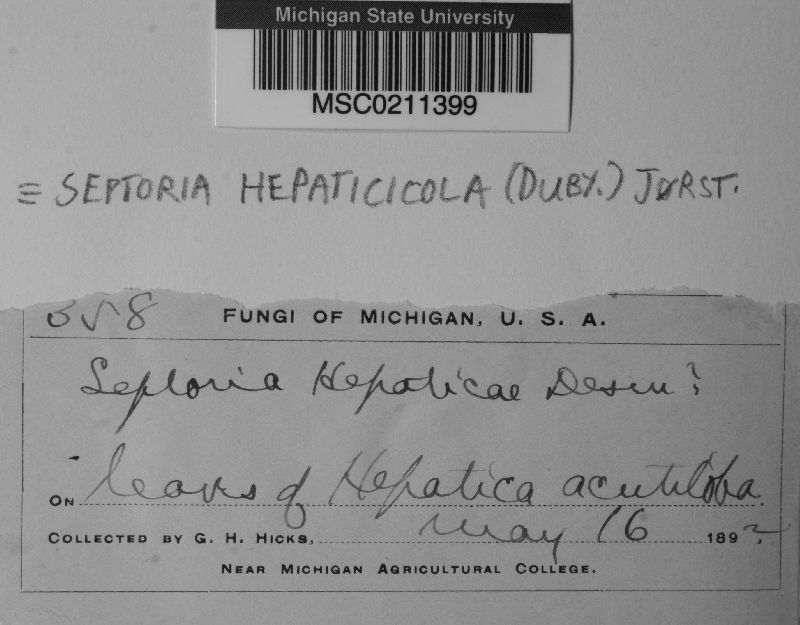 Michigan State University
MSC0211399
= SEPTORIA HEPATICICOLA (DUBY.) JØRST.
558 FUNGI OF MICHIGAN, U. S. A.
Septoria Hepaticae Desm?
ON leaves of Hepatica acutiloba.
COLLECTED BY G. H. HICKS, May 16 1892.
NEAR MICHIGAN AGRICULTURAL COLLEGE.